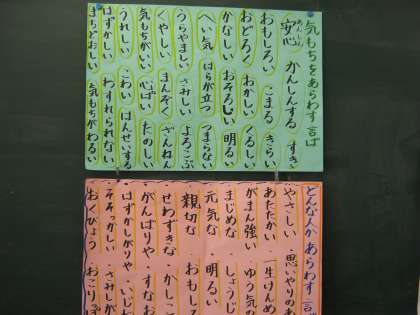 気もちをあらわす言ば
安心 かんしんする すき
あんしん
おもしろい こまる きらい
おどろく おかしい くるしい
かなしい おそろしい 明るい
へい気 はらが立つ つまらない
うらやましい さみしい よろこぶ
くやしい まんぞく ざんねん
気もちがいい 心ぱい たのしい
うれしい こわい はんせいする
はずかしい わすれられない
まちどおしい 気もちがわるい
どんな人かあらわす言
やさしい ・思いやりのあ
あたたかい ・一生けんめ
がまん強い ・ゆう気の
まじめな ・しょうじ
元気な ・明るい
親切な ・おもしろ
せわずきな ・かしこ
・がんばりや ・すなお
・はずかしがりや ・いじわ
・そそっかしい ・さみしが
おくびょう おこりっ